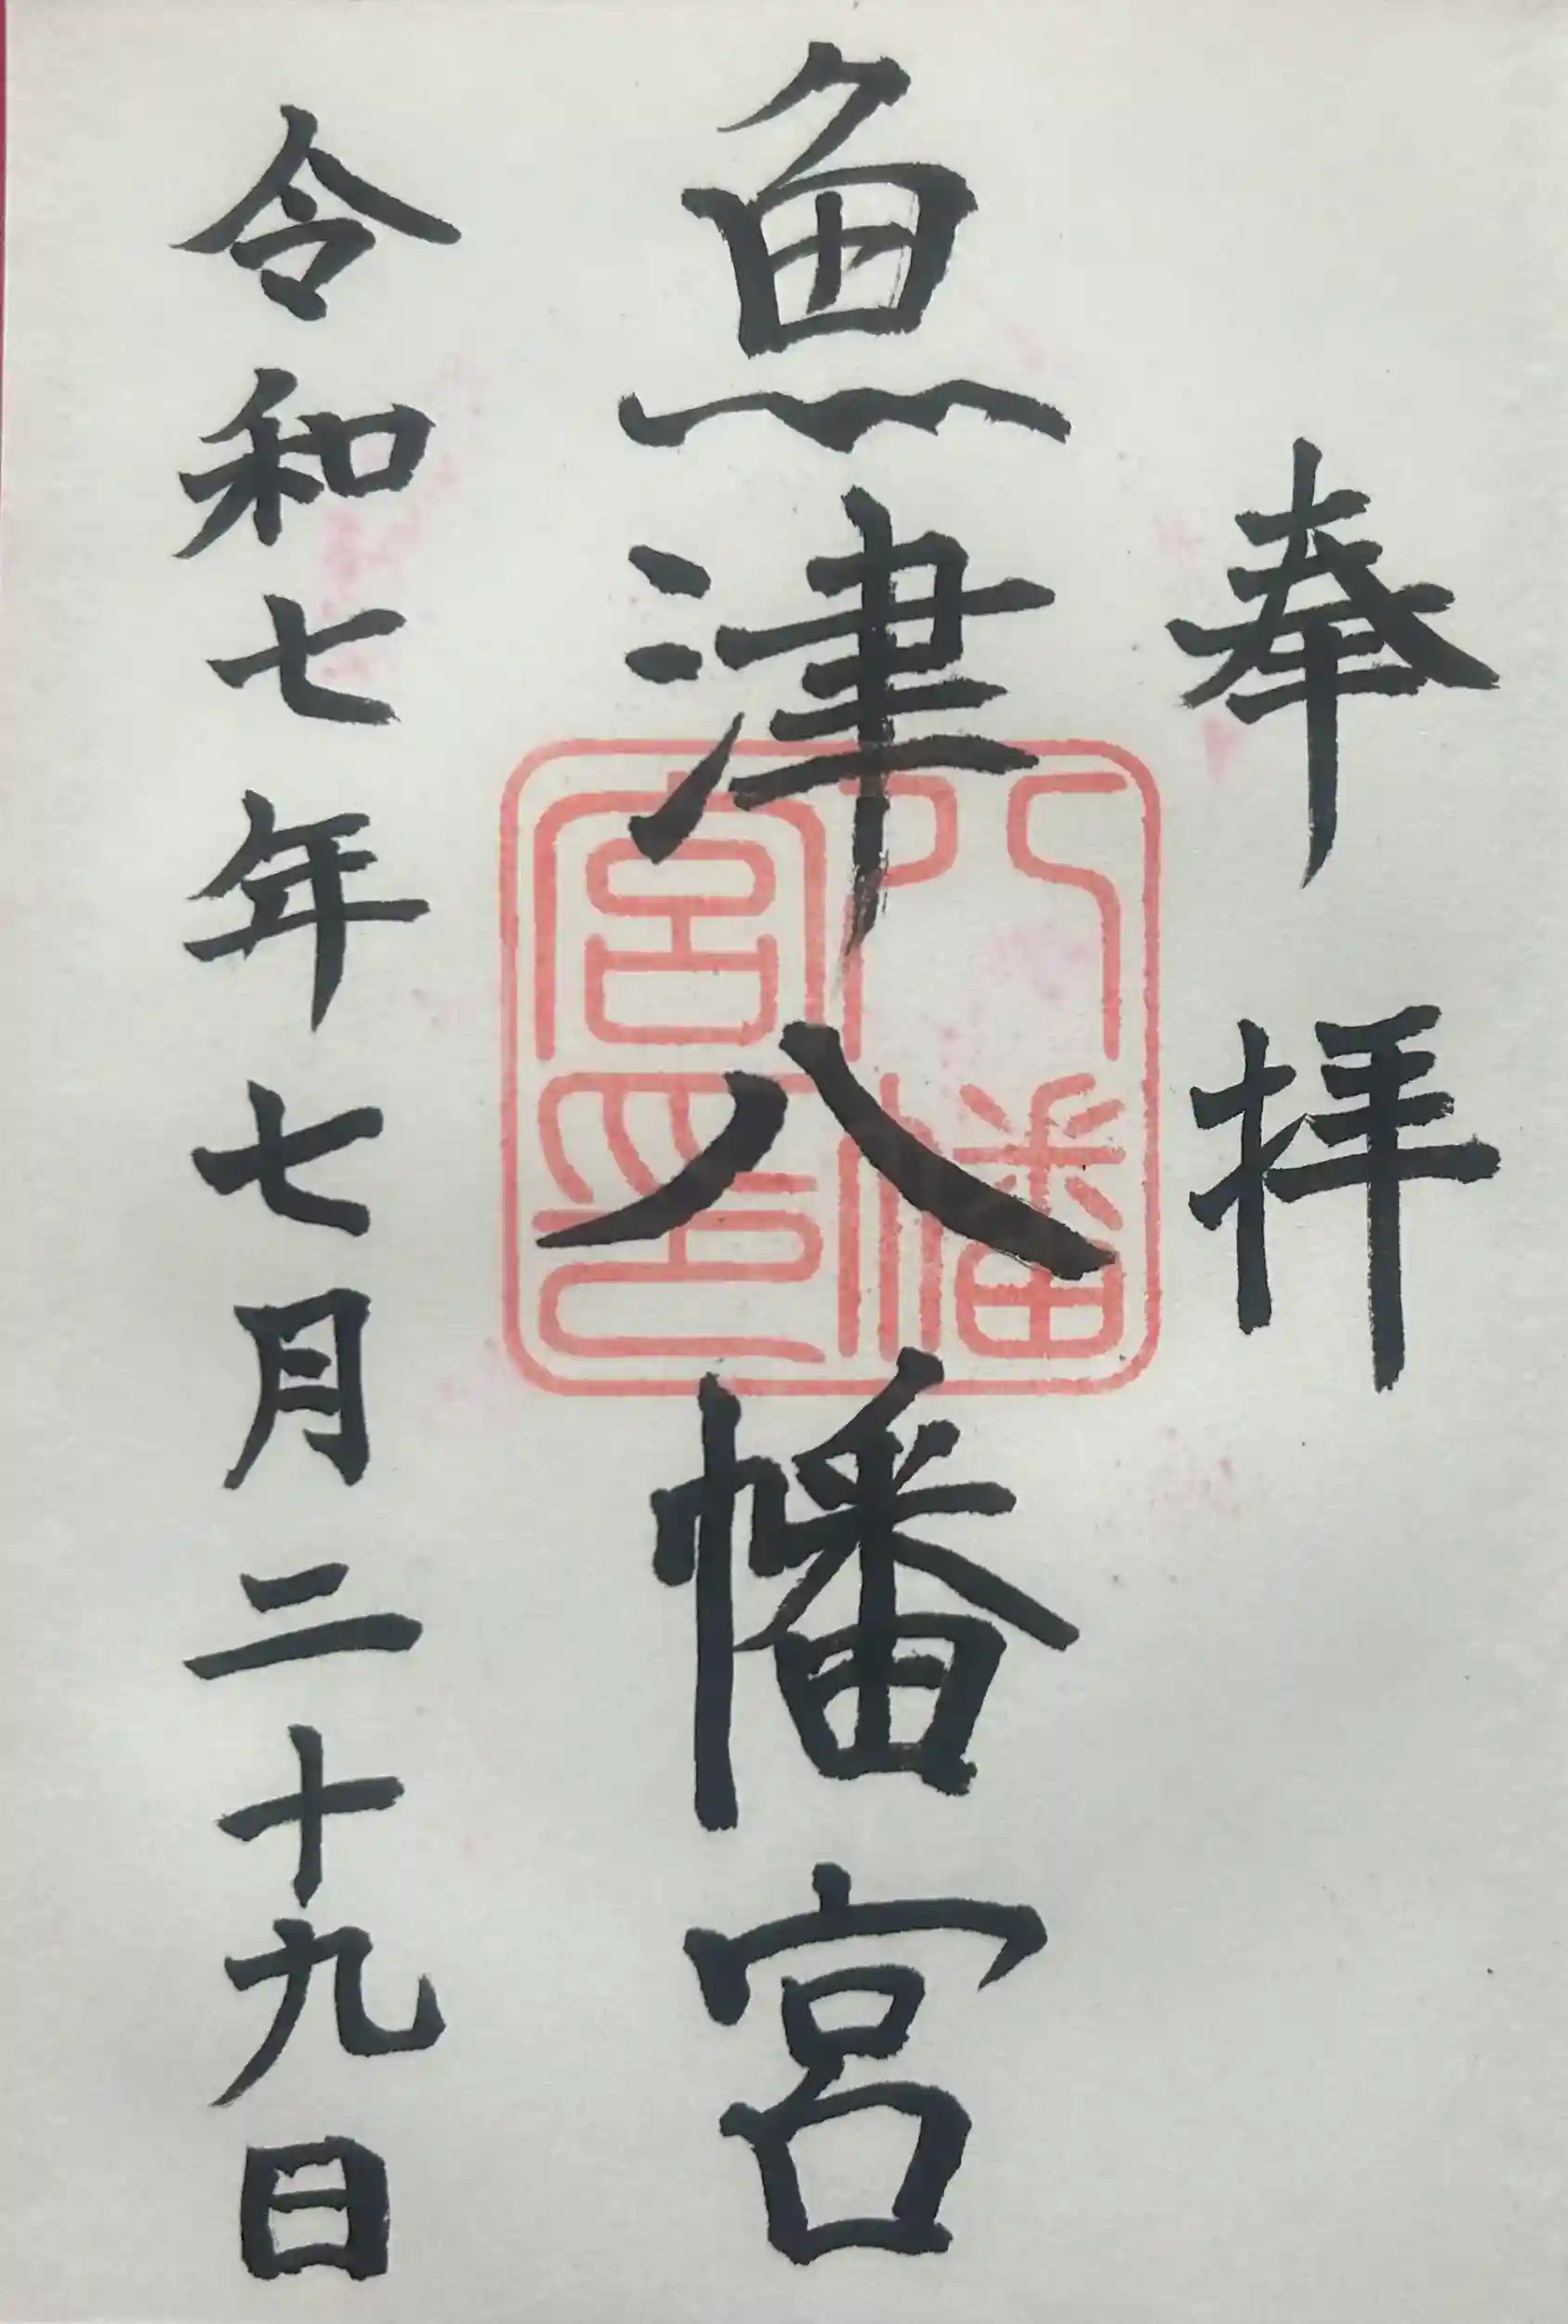 奉拝
魚津八幡宮
八幡宮印
令和七年七月二十九日